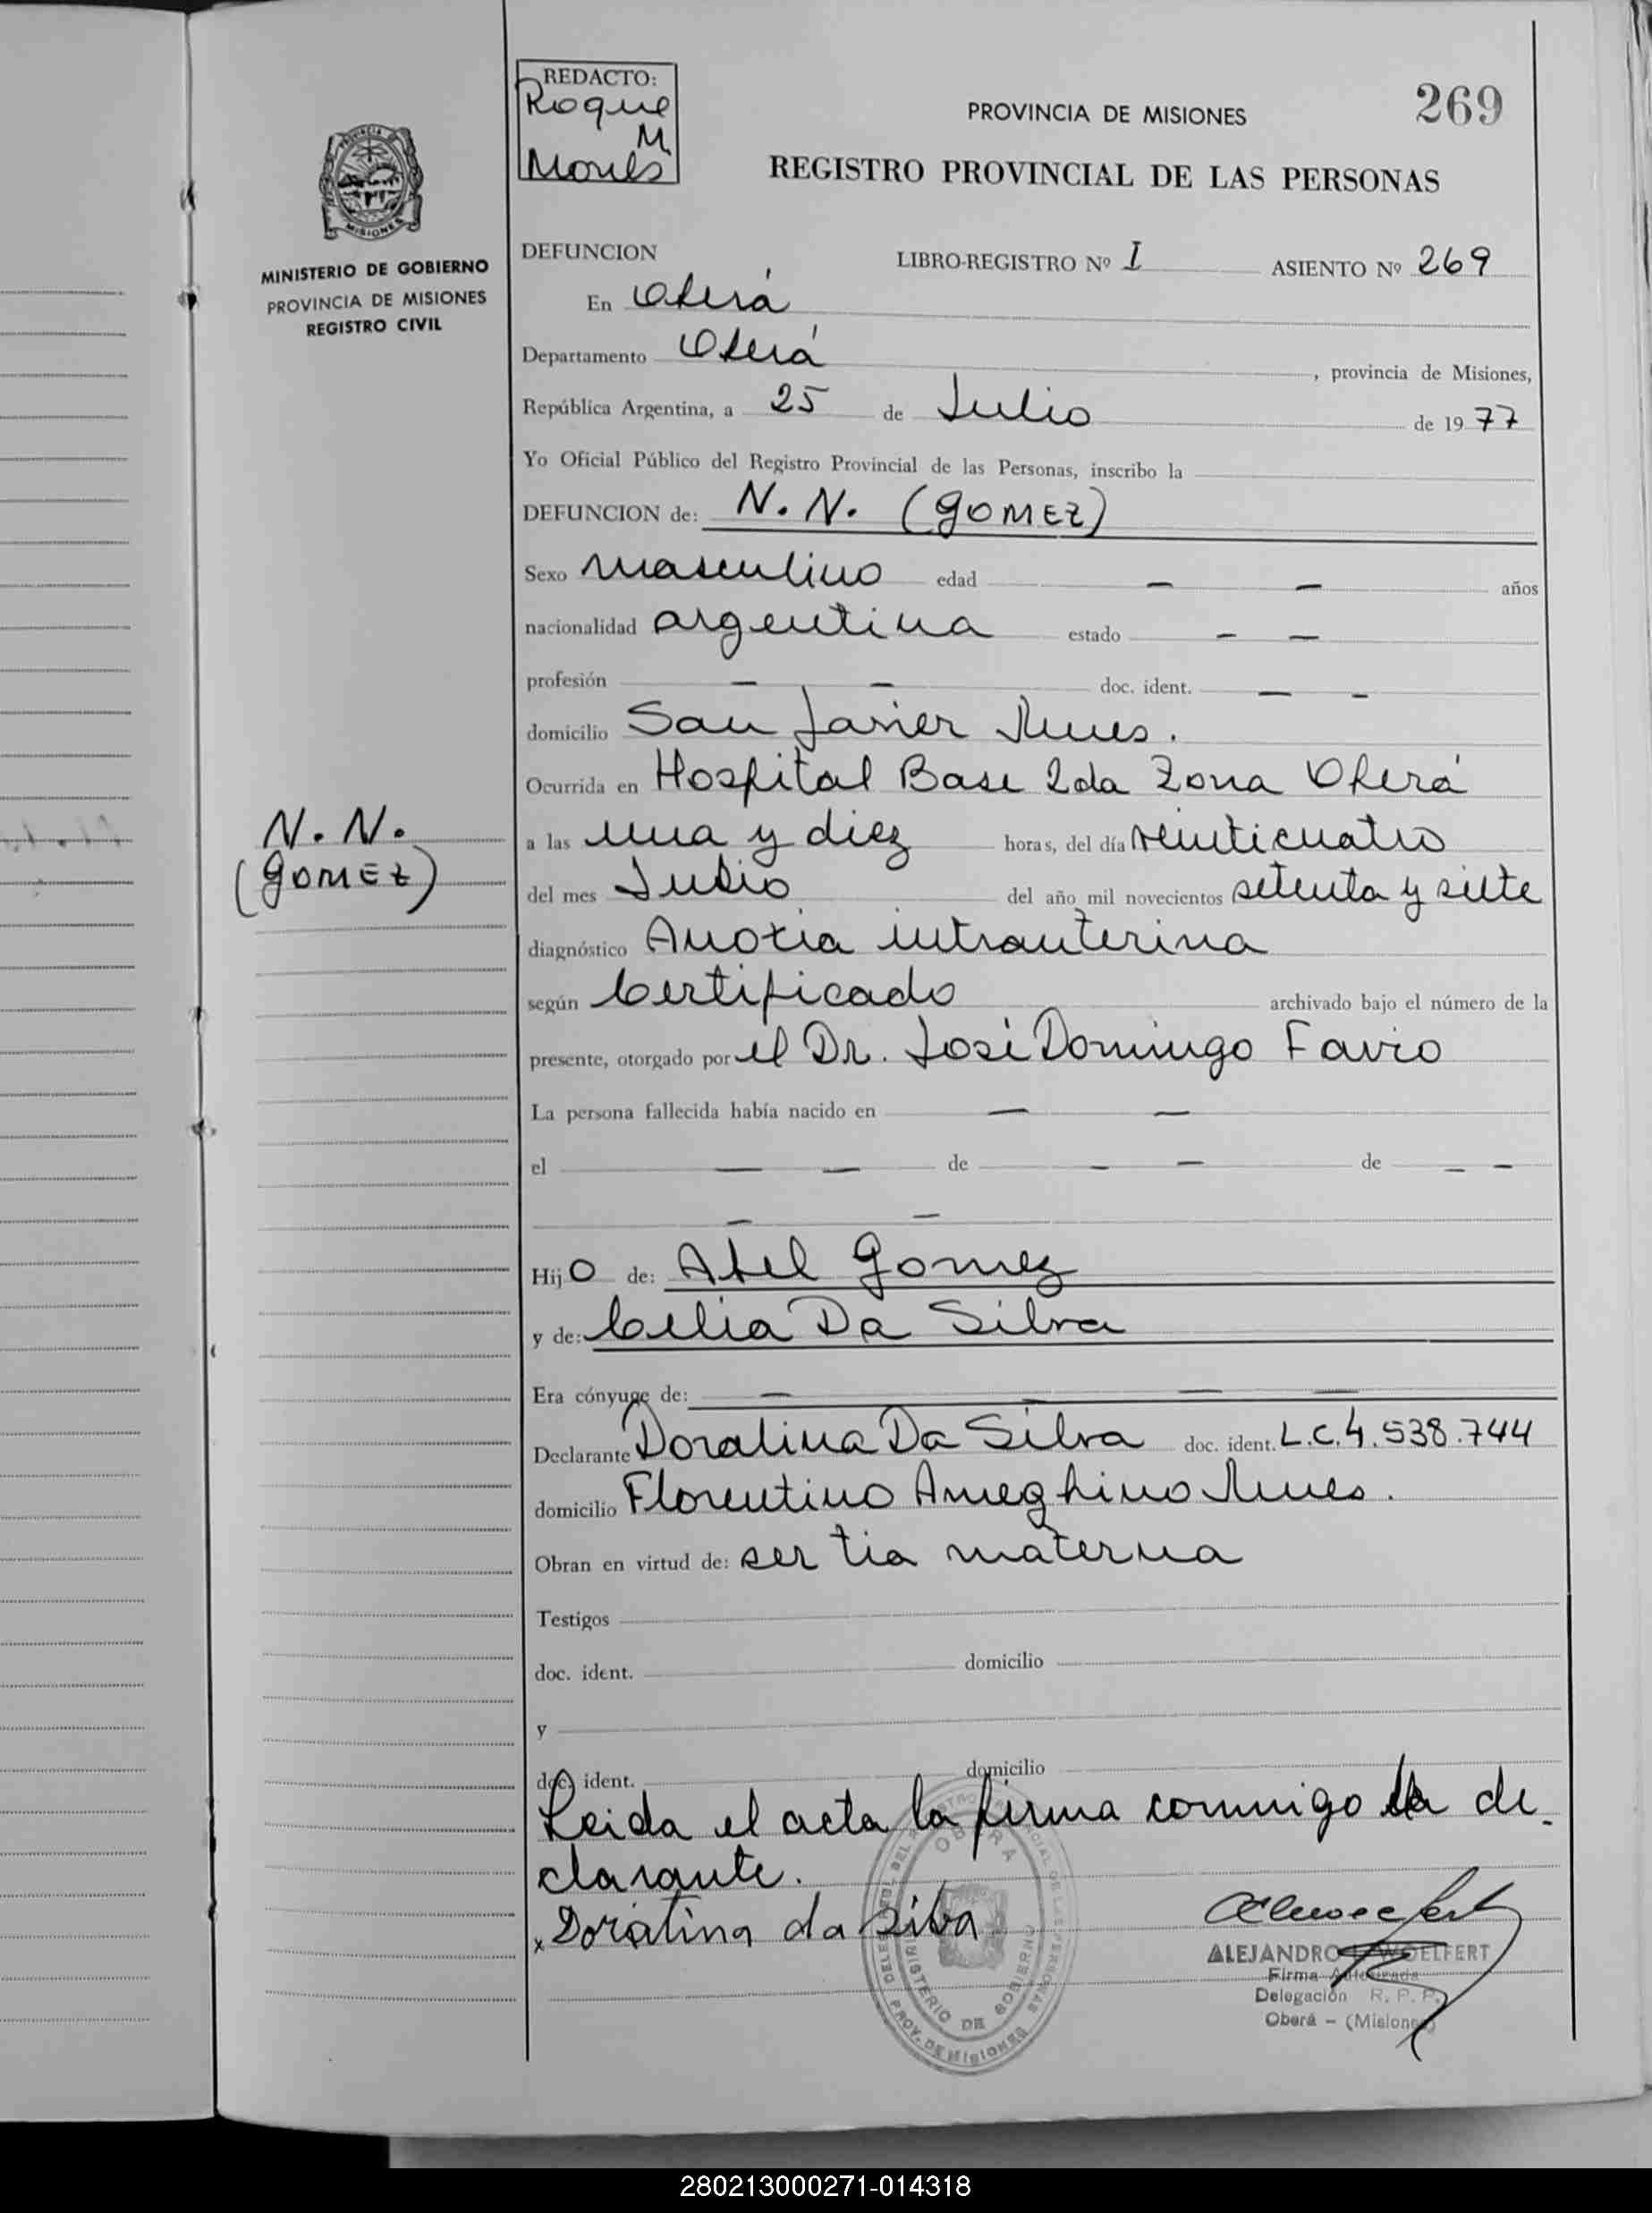 REDACTO:
Roque
M
PROVINCIA DE MISIONES
269
REGISTRO PROVINCIAL DE LAS PERSONAS
MINISTERIO DE GOBIERNO
PROVINCIA DE MISIONES
REGISTRO CIVIL
DEFUNCION LIBRO-REGISTRO Nº I ASIENTO Nº 269
En Oberá
Departamento Oberá, provincia de Misiones,
República Argentina, a 25 de Julio de 1977
Yo Oficial Público del Registro Provincial de las Personas, inscribo la
DEFUNCION de: N. N. (GOMEZ)
Sexo masculino edad — — años
nacionalidad argentina estado — —
profesión — — doc. ident. — —
domicilio San Javier Mnes.
Ocurrida en Hospital Base 2da Zona Oberá
N. N.
(GOMEZ)
a las una y diez horas, del día veinticuatro
del mes Julio del año mil novecientos setenta y siete
diagnóstico Anoxia intrauterina
según Certificado archivado bajo el número de la
presente, otorgado por el Dr. José Domingo Favio
La persona fallecida había nacido en — —
el — — de — — de — —
— —
Hijo de: Abel Gomez
y de: Celia Da Silva
Era cónyuge de: — — — —
Declarante Doralina Da Silva doc. ident. L.C. 4.538.744
domicilio Florentino Ameghino Mnes.
Obran en virtud de: ser tia materna
Testigos
doc. ident. domicilio
y
doc. ident. domicilio
Leida el acta la firma conmigo la de-
clarante.
x Doratina da silva
ALEJANDRO WOELFERT
Firma Autorizada
Delegación R. P. P.
Oberá - (Misiones)
OBERA
MINISTERIO DE GOBIERNO
PROV. DE MISIONES
280213000271-014318